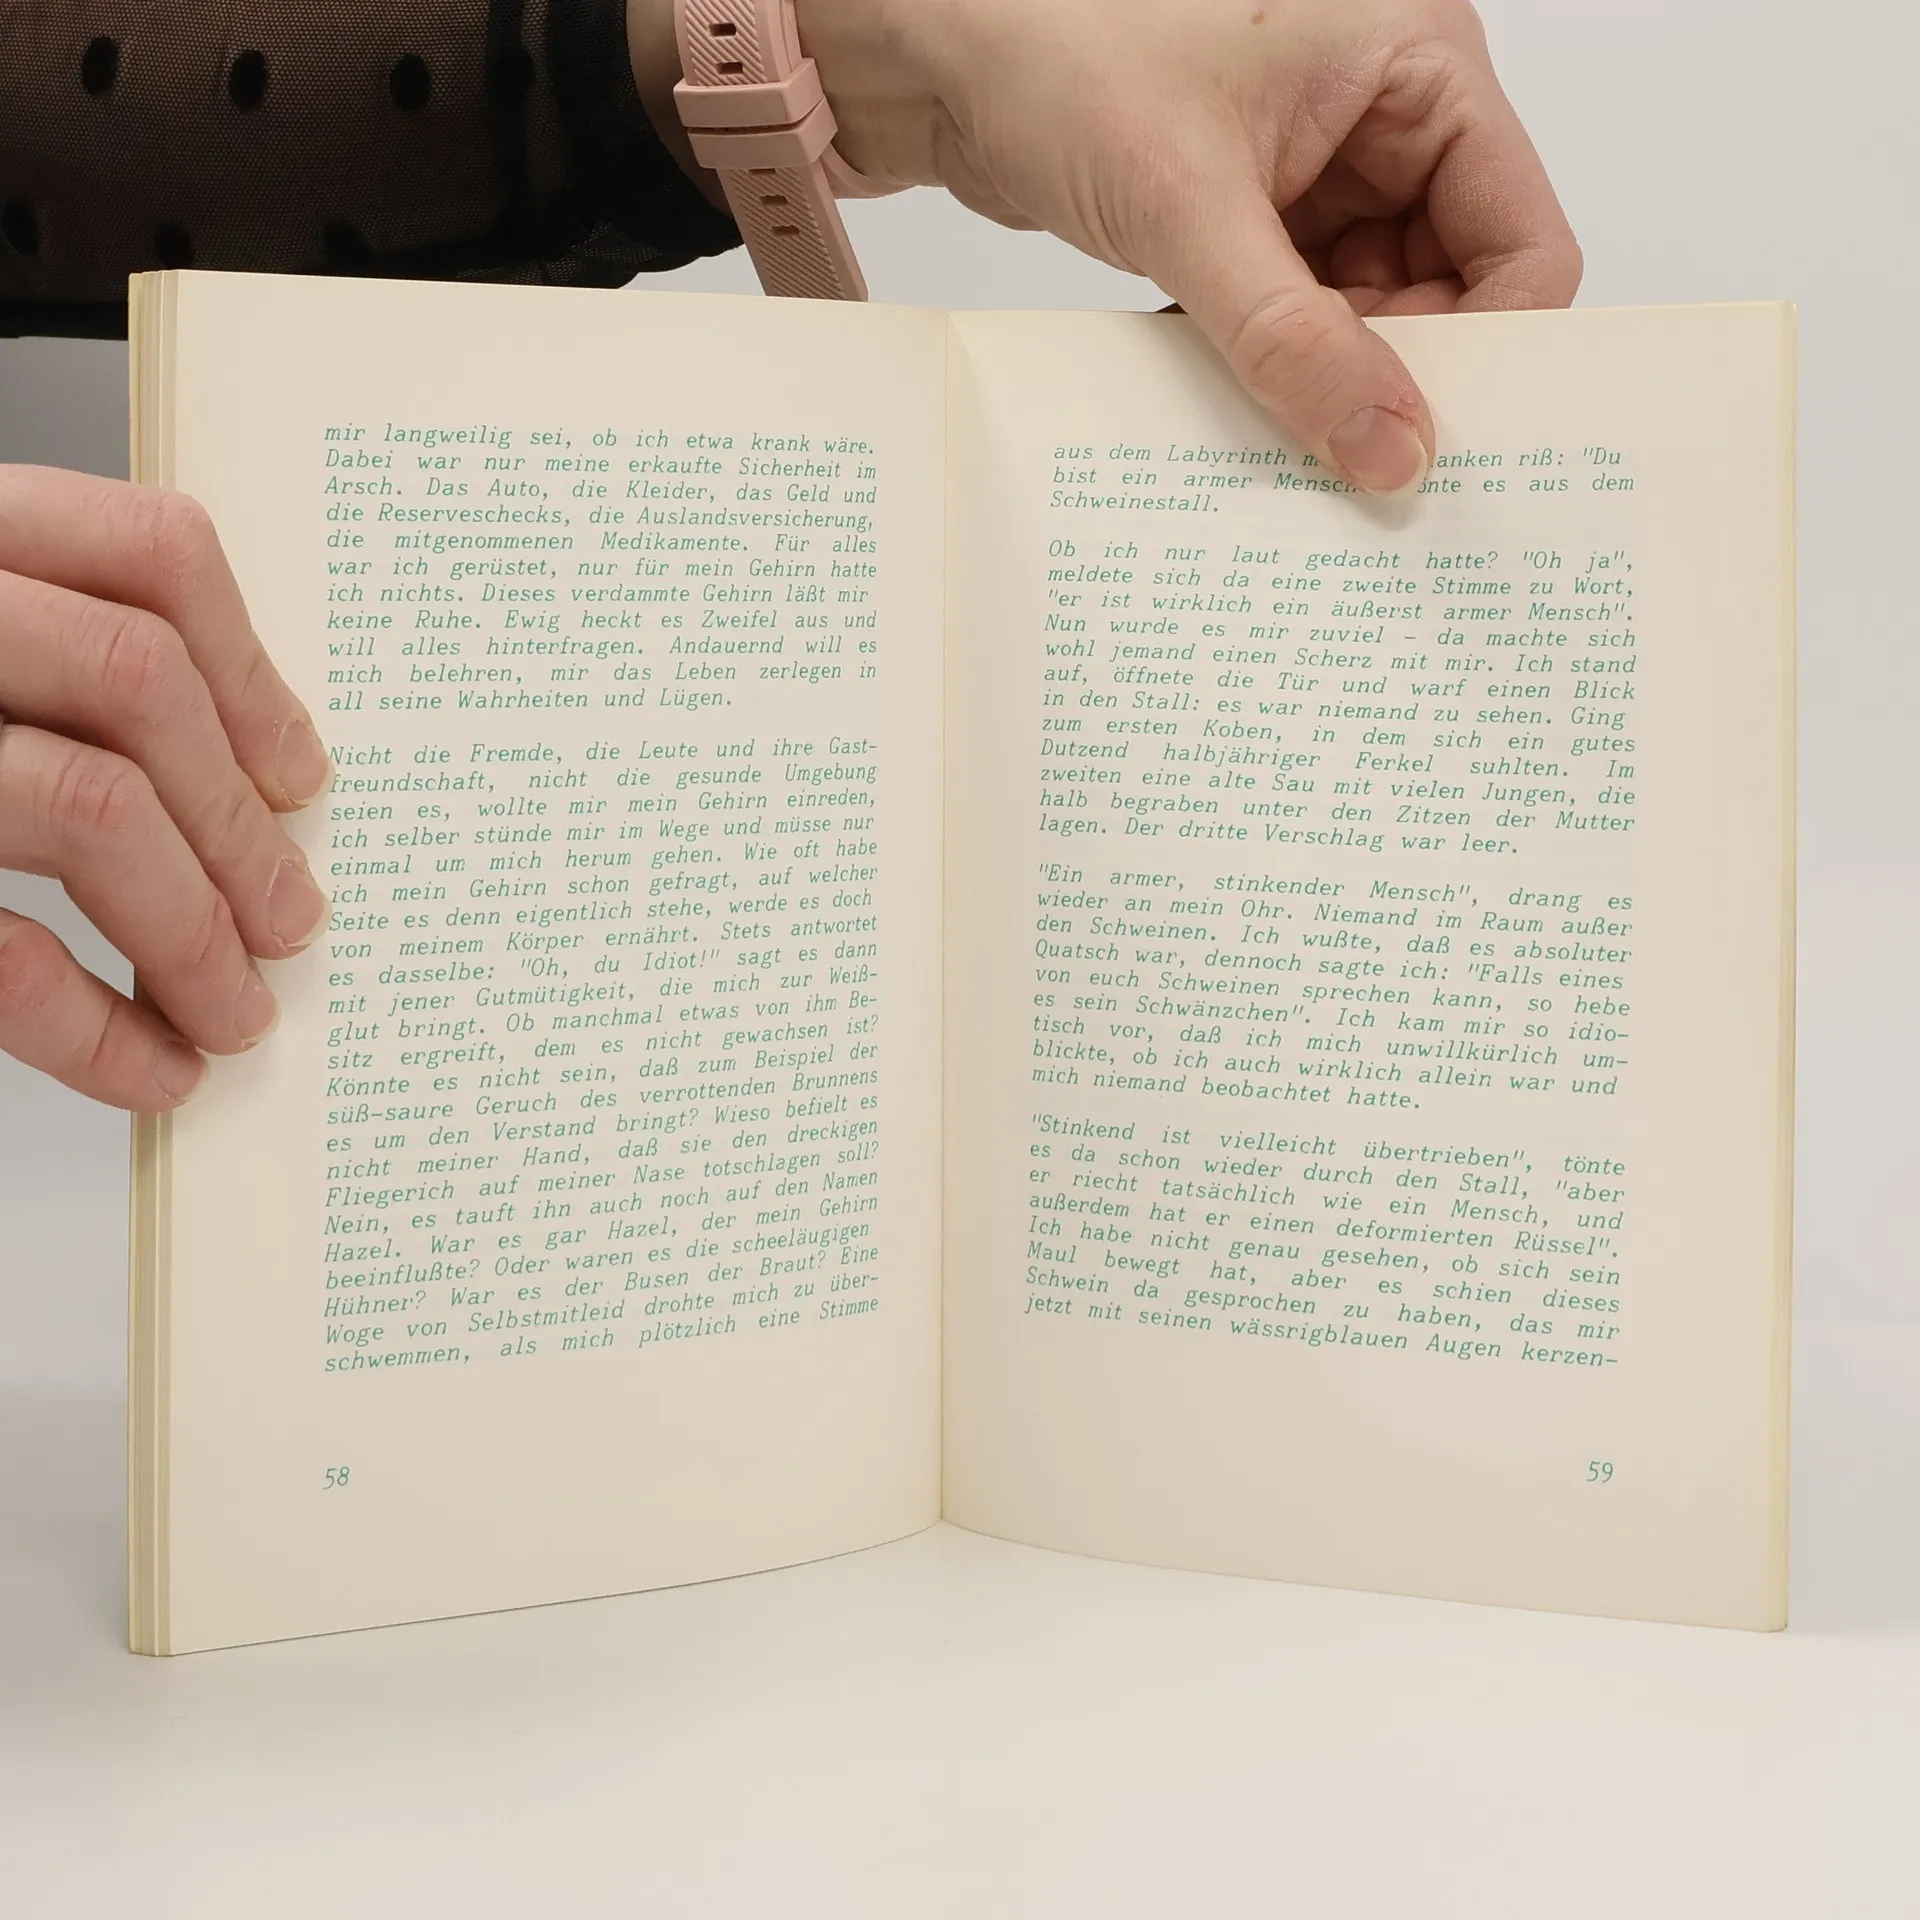 mir langweilig sei, ob ich etwa krank wäre.
Dabei war nur meine erkaufte Sicherheit im
Arsch. Das Auto, die Kleider, das Geld und
die Reserveschecks, die Auslandsversicherung,
die mitgenommenen Medikamente. Für alles
war ich gerüstet, nur für mein Gehirn hatte
ich nichts. Dieses verdammte Gehirn läßt mir
keine Ruhe. Ewig heckt es Zweifel aus und
will alles hinterfragen. Andauernd will es
mich belehren, mir das Leben zerlegen in
all seine Wahrheiten und Lügen.
Nicht die Fremde, die Leute und ihre Gast-
freundschaft, nicht die gesunde Umgebung
seien es, wollte mir mein Gehirn einreden,
ich selber stünde mir im Wege und müsse nur
einmal um mich herum gehen. Wie oft habe
ich mein Gehirn schon gefragt, auf welcher
Seite es denn eigentlich stehe, werde es doch
von meinem Körper ernährt. Stets antwortet
es dasselbe: "Oh, du Idiot!" sagt es dann
mit jener Gutmütigkeit, die mich zur Weiß-
glut bringt. Ob manchmal etwas von ihm Be-
sitz ergreift, dem es nicht gewachsen ist?
Könnte es nicht sein, daß zum Beispiel der
süß-saure Geruch des verrottenden Brunnens
es um den Verstand bringt? Wieso befielt es
nicht meiner Hand, daß sie den dreckigen
Fliegerich auf meiner Nase totschlagen soll?
Nein, es tauft ihn auch noch auf den Namen
Hazel. War es gar Hazel, der mein Gehirn
beeinflußte? Oder waren es die scheeläugigen
Hühner? War es der Busen der Braut? Eine
Woge von Selbstmitleid drohte mich zu über-
schwemmen, als mich plötzlich eine Stimme
58
aus dem Labyrinth anken riß: "Du
bist ein armer Mensch önte es aus dem
Schweinestall.
Ob ich nur laut gedacht hatte? "Oh ja",
meldete sich da eine zweite Stimme zu Wort,
"er ist wirklich ein äußerst armer Mensch".
Nun wurde es mir zuviel – da machte sich
wohl jemand einen Scherz mit mir. Ich stand
auf, öffnete die Tür und warf einen Blick
in den Stall: es war niemand zu sehen. Ging
zum ersten Koben, in dem sich ein gutes
Dutzend halbjähriger Ferkel suhlten. Im
zweiten eine alte Sau mit vielen Jungen, die
halb begraben unter den Zitzen der Mutter
lagen. Der dritte Verschlag war leer.
"Ein armer, stinkender Mensch", drang es
wieder an mein Ohr. Niemand im Raum außer
den Schweinen. Ich wußte, daß es absoluter
Quatsch war, dennoch sagte ich: "Falls eines
von euch Schweinen sprechen kann, so hebe
es sein Schwänzchen". Ich kam mir so idio-
tisch vor, daß ich mich unwillkürlich um-
blickte, ob ich auch wirklich allein war und
mich niemand beobachtet hatte.
"Stinkend ist vielleicht übertrieben", tönte
es da schon wieder durch den Stall, "aber
er riecht tatsächlich wie ein Mensch, und
außerdem hat er einen deformierten Rüssel".
Ich habe nicht genau gesehen, ob sich sein
Maul bewegt hat, aber es schien dieses
Schwein da gesprochen zu haben, das mir
jetzt mit seinen wässrigblauen Augen kerzen-
59